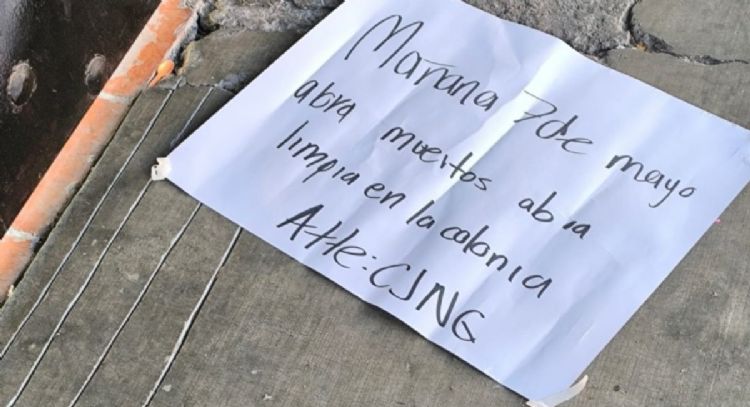 Mañana 7 de mayo
abra muertos abra
limpia en la colonia
Atte: CJNG